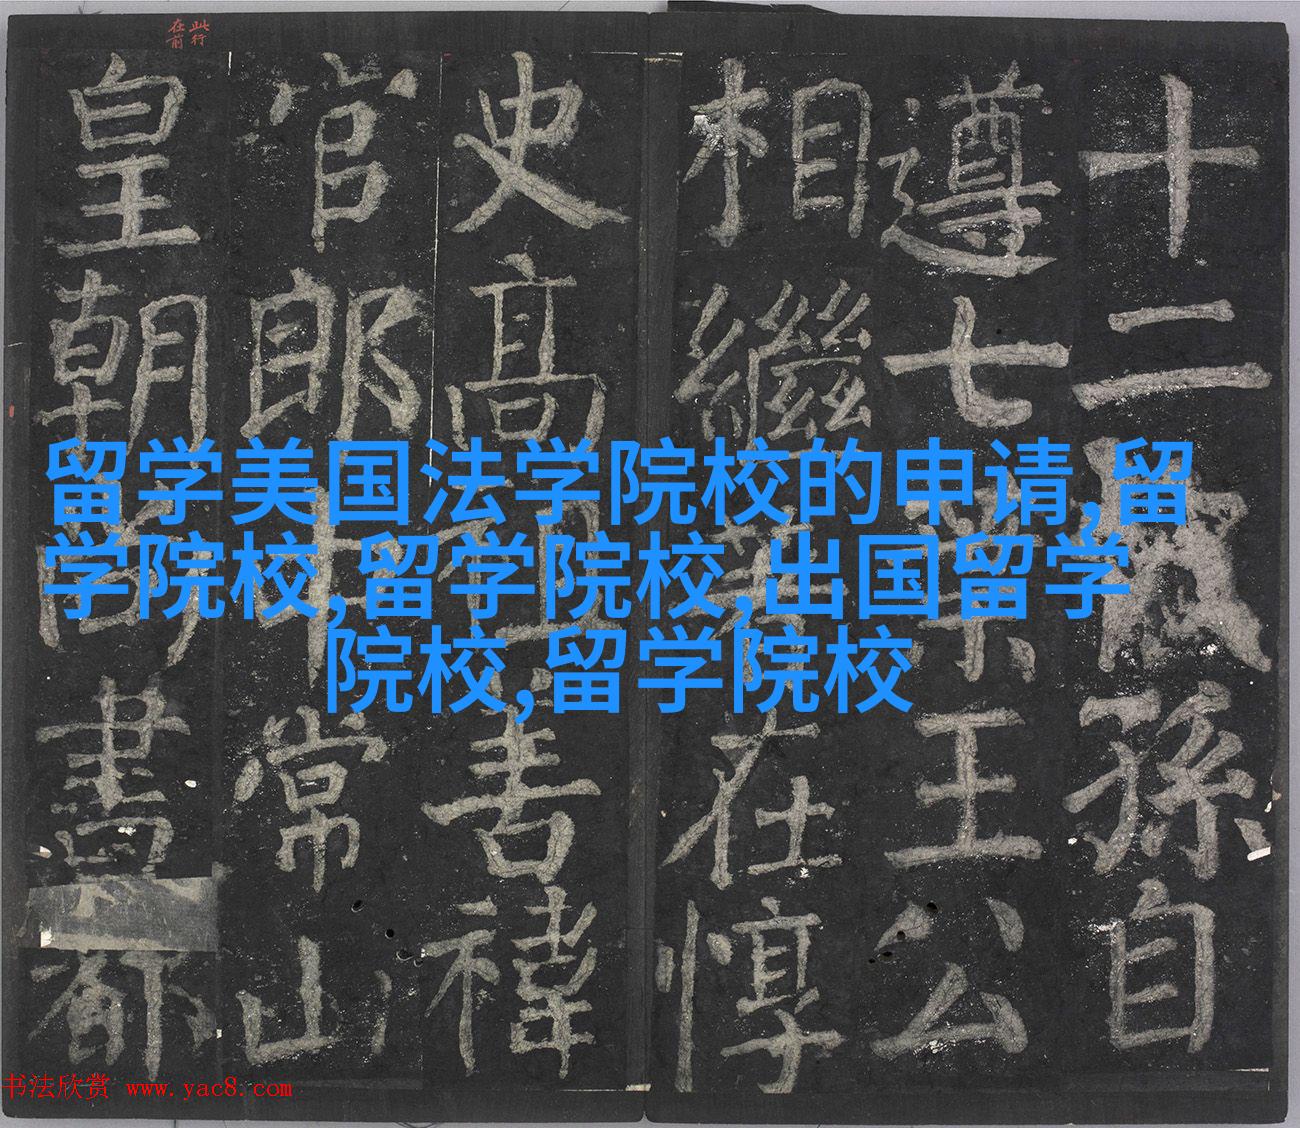 此行
在前
十二孫自
遵七王公
相繼在惇
史高善禕
官郎常山
皇朝書都
留学美国法学院校的申请,留
学院校,留学院校,出国留学
院校,留学院校
书法欣赏 www.yac8.com